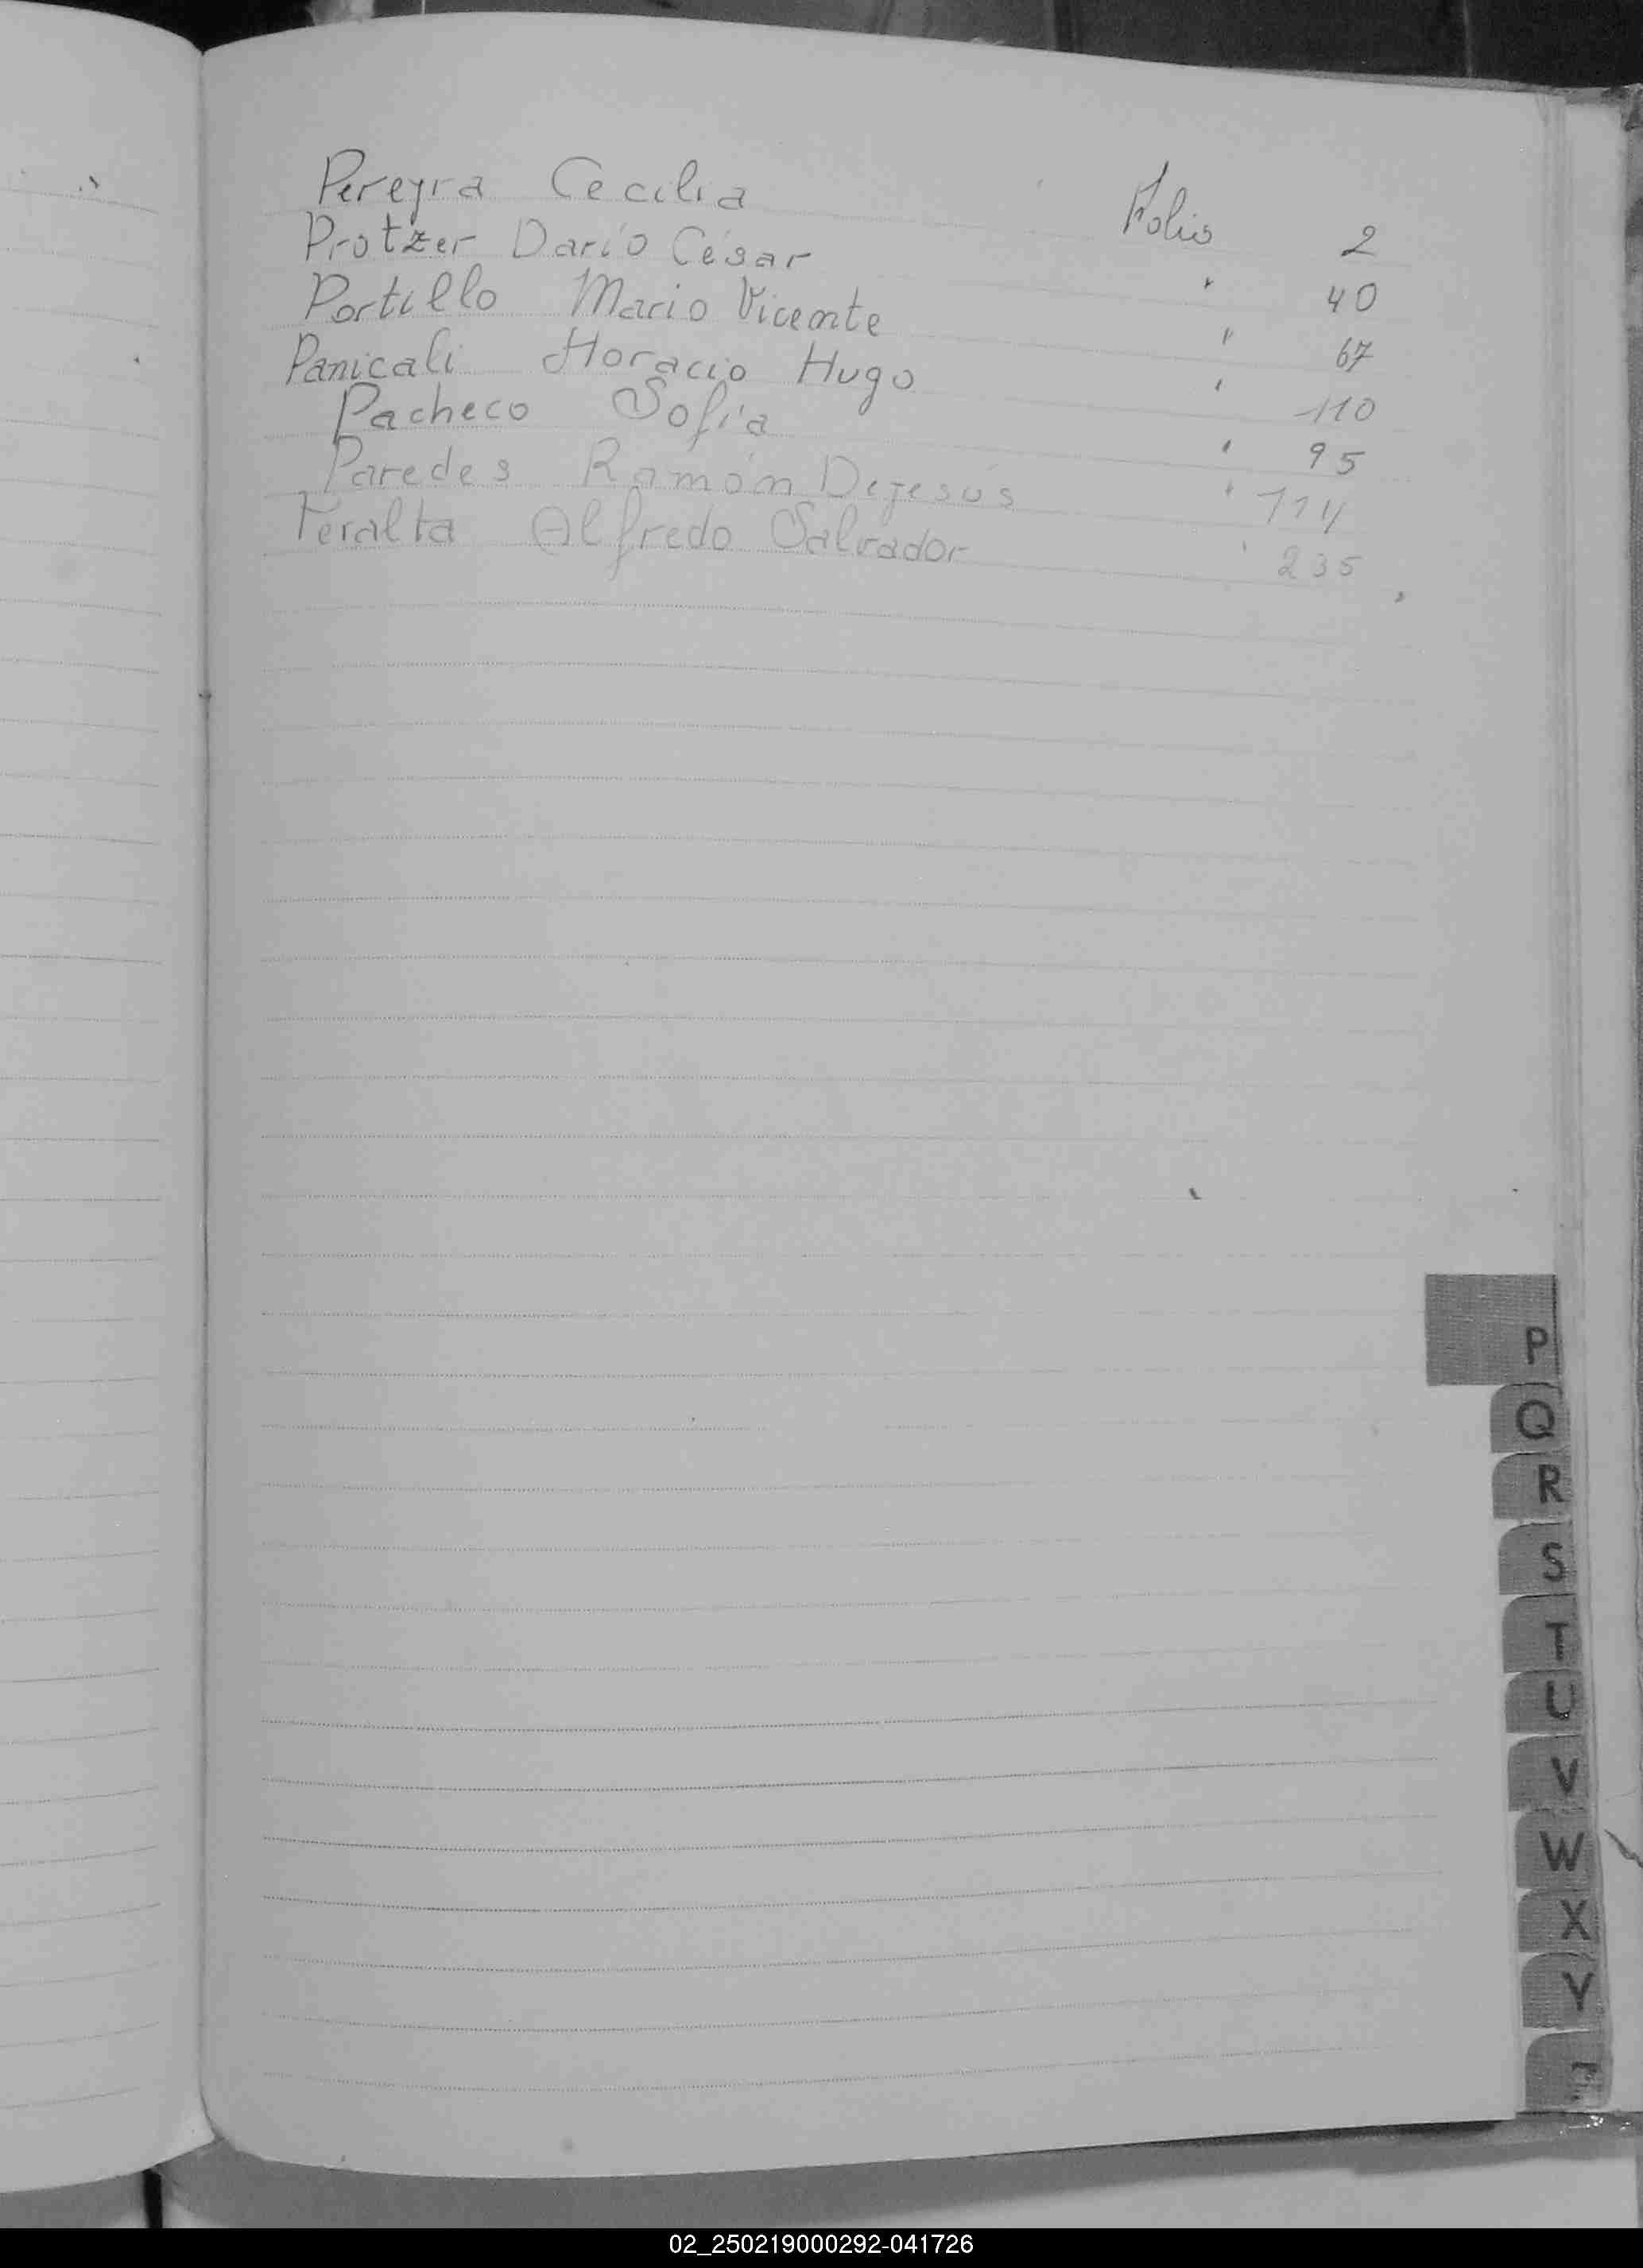 Pereyra Cecilia Folio 2
Protzer Darío César " 40
Portillo Mario Vicente " 67
Panicali Horacio Hugo " 110
Pacheco Sofía " 95
Paredes Ramón Dejesús " 114
Peralta Alfredo Salvador " 235
P
Q
R
S
T
U
V
W
X
Y
02_250219000292-041726